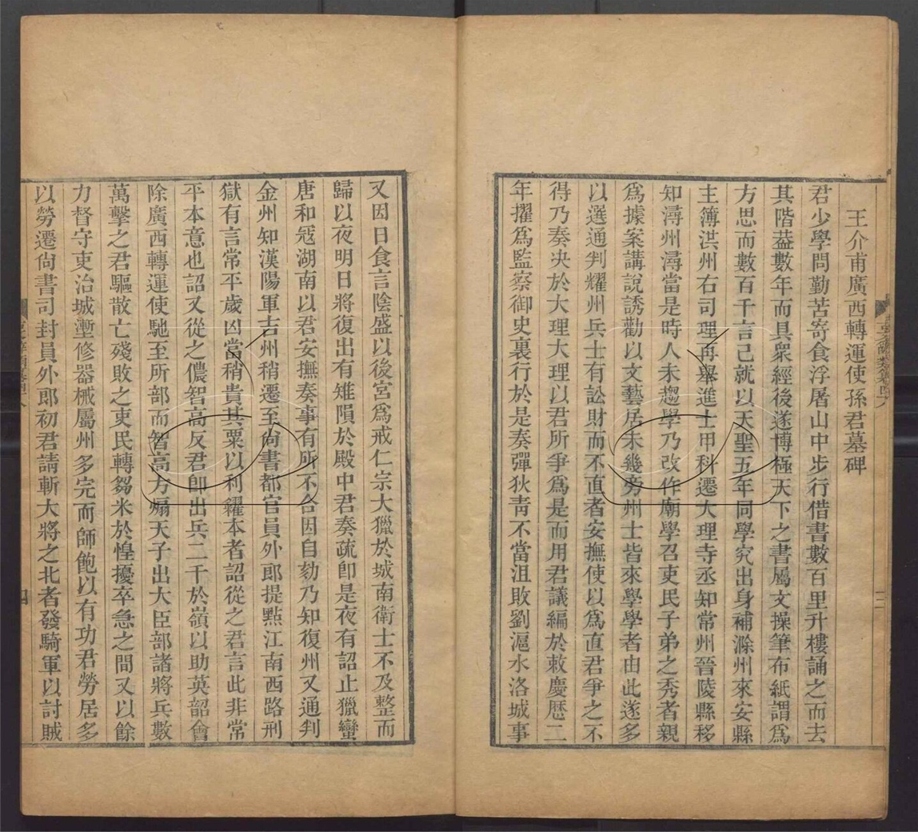 王介甫廣西轉運使孫君墓碑
君少學問勤苦寄食浮屠山中步行借書數百里升樓誦之而去
其階葢數年而具衆經後遂博極天下之書屬文操筆布紙謂爲
方思而數百千言已就以天聖五年同學究出身補滁州來安縣
主簿洪州右司理再舉進士甲科遷大理寺丞知常州晉陵縣移
知潯州潯當是時人未趨學乃改作廟學召吏民子弟之秀者親
爲據案講說誘勸以文藝居未幾旁州士皆來學學者由此遂多
以選通判耀州兵士有訟財而不直者安撫使以爲直君爭之不
得乃奏決於大理大理以君所爭爲是而用君議編於敕慶歷二
年擢爲監察御史裏行於是奏彈狄靑不當沮敗劉滬水洛城事
又因日食言陰盛以後宮爲戒仁宗大獵於城南衛士不及整而
歸以夜明日將復出有雉隕於殿中君奏疏卽是夜有詔止獵蠻
唐和寇湖南以君安撫奏事有所不合因自劾乃知復州又通判
金州知漢陽軍吉州稍遷至尚書都官員外郎提點江南西路刑
獄有言常平歲凶當稍貴其粟以利糴本者詔從之君言此非常
平本意也詔又從之儂智高反君卽出兵二千於嶺以助英韶會
除廣西轉運使馳至所部而智高方煽天子出大臣部諸將兵數
萬擊之君驅散亡殘敗之吏民轉芻米於惶擾卒急之間又以餘
力督守吏治城塹修器械屬州多完而師飽以有功君勞居多
以勞遷尚書司封員外郎初君請斬大將之北者發騎軍以討賊